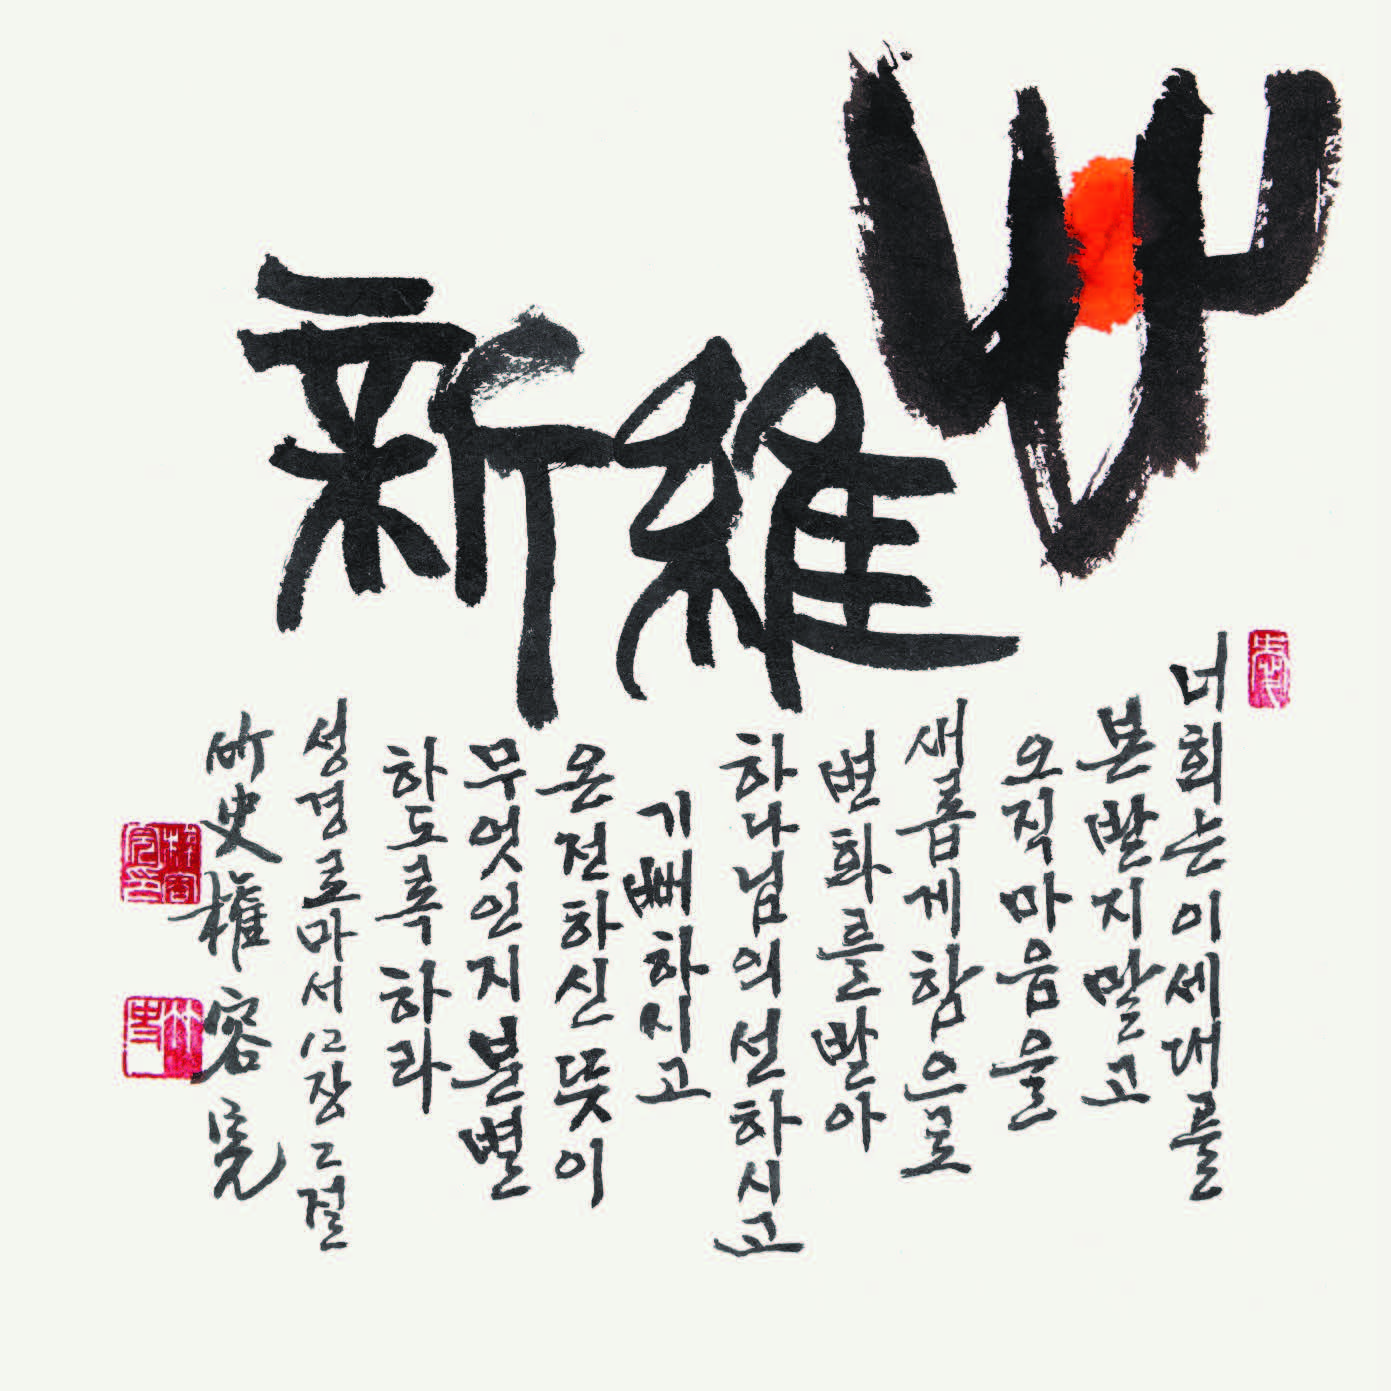 維新
너희는이세대를
본받지말고
오직마음을
새롭게함으로
변화를받아
하나님의선하시고
기뻐하시고
온전하신뜻이
무엇인지분별
하도록하라
성경로마서12장2절
竹史權容完
權容完印
竹史